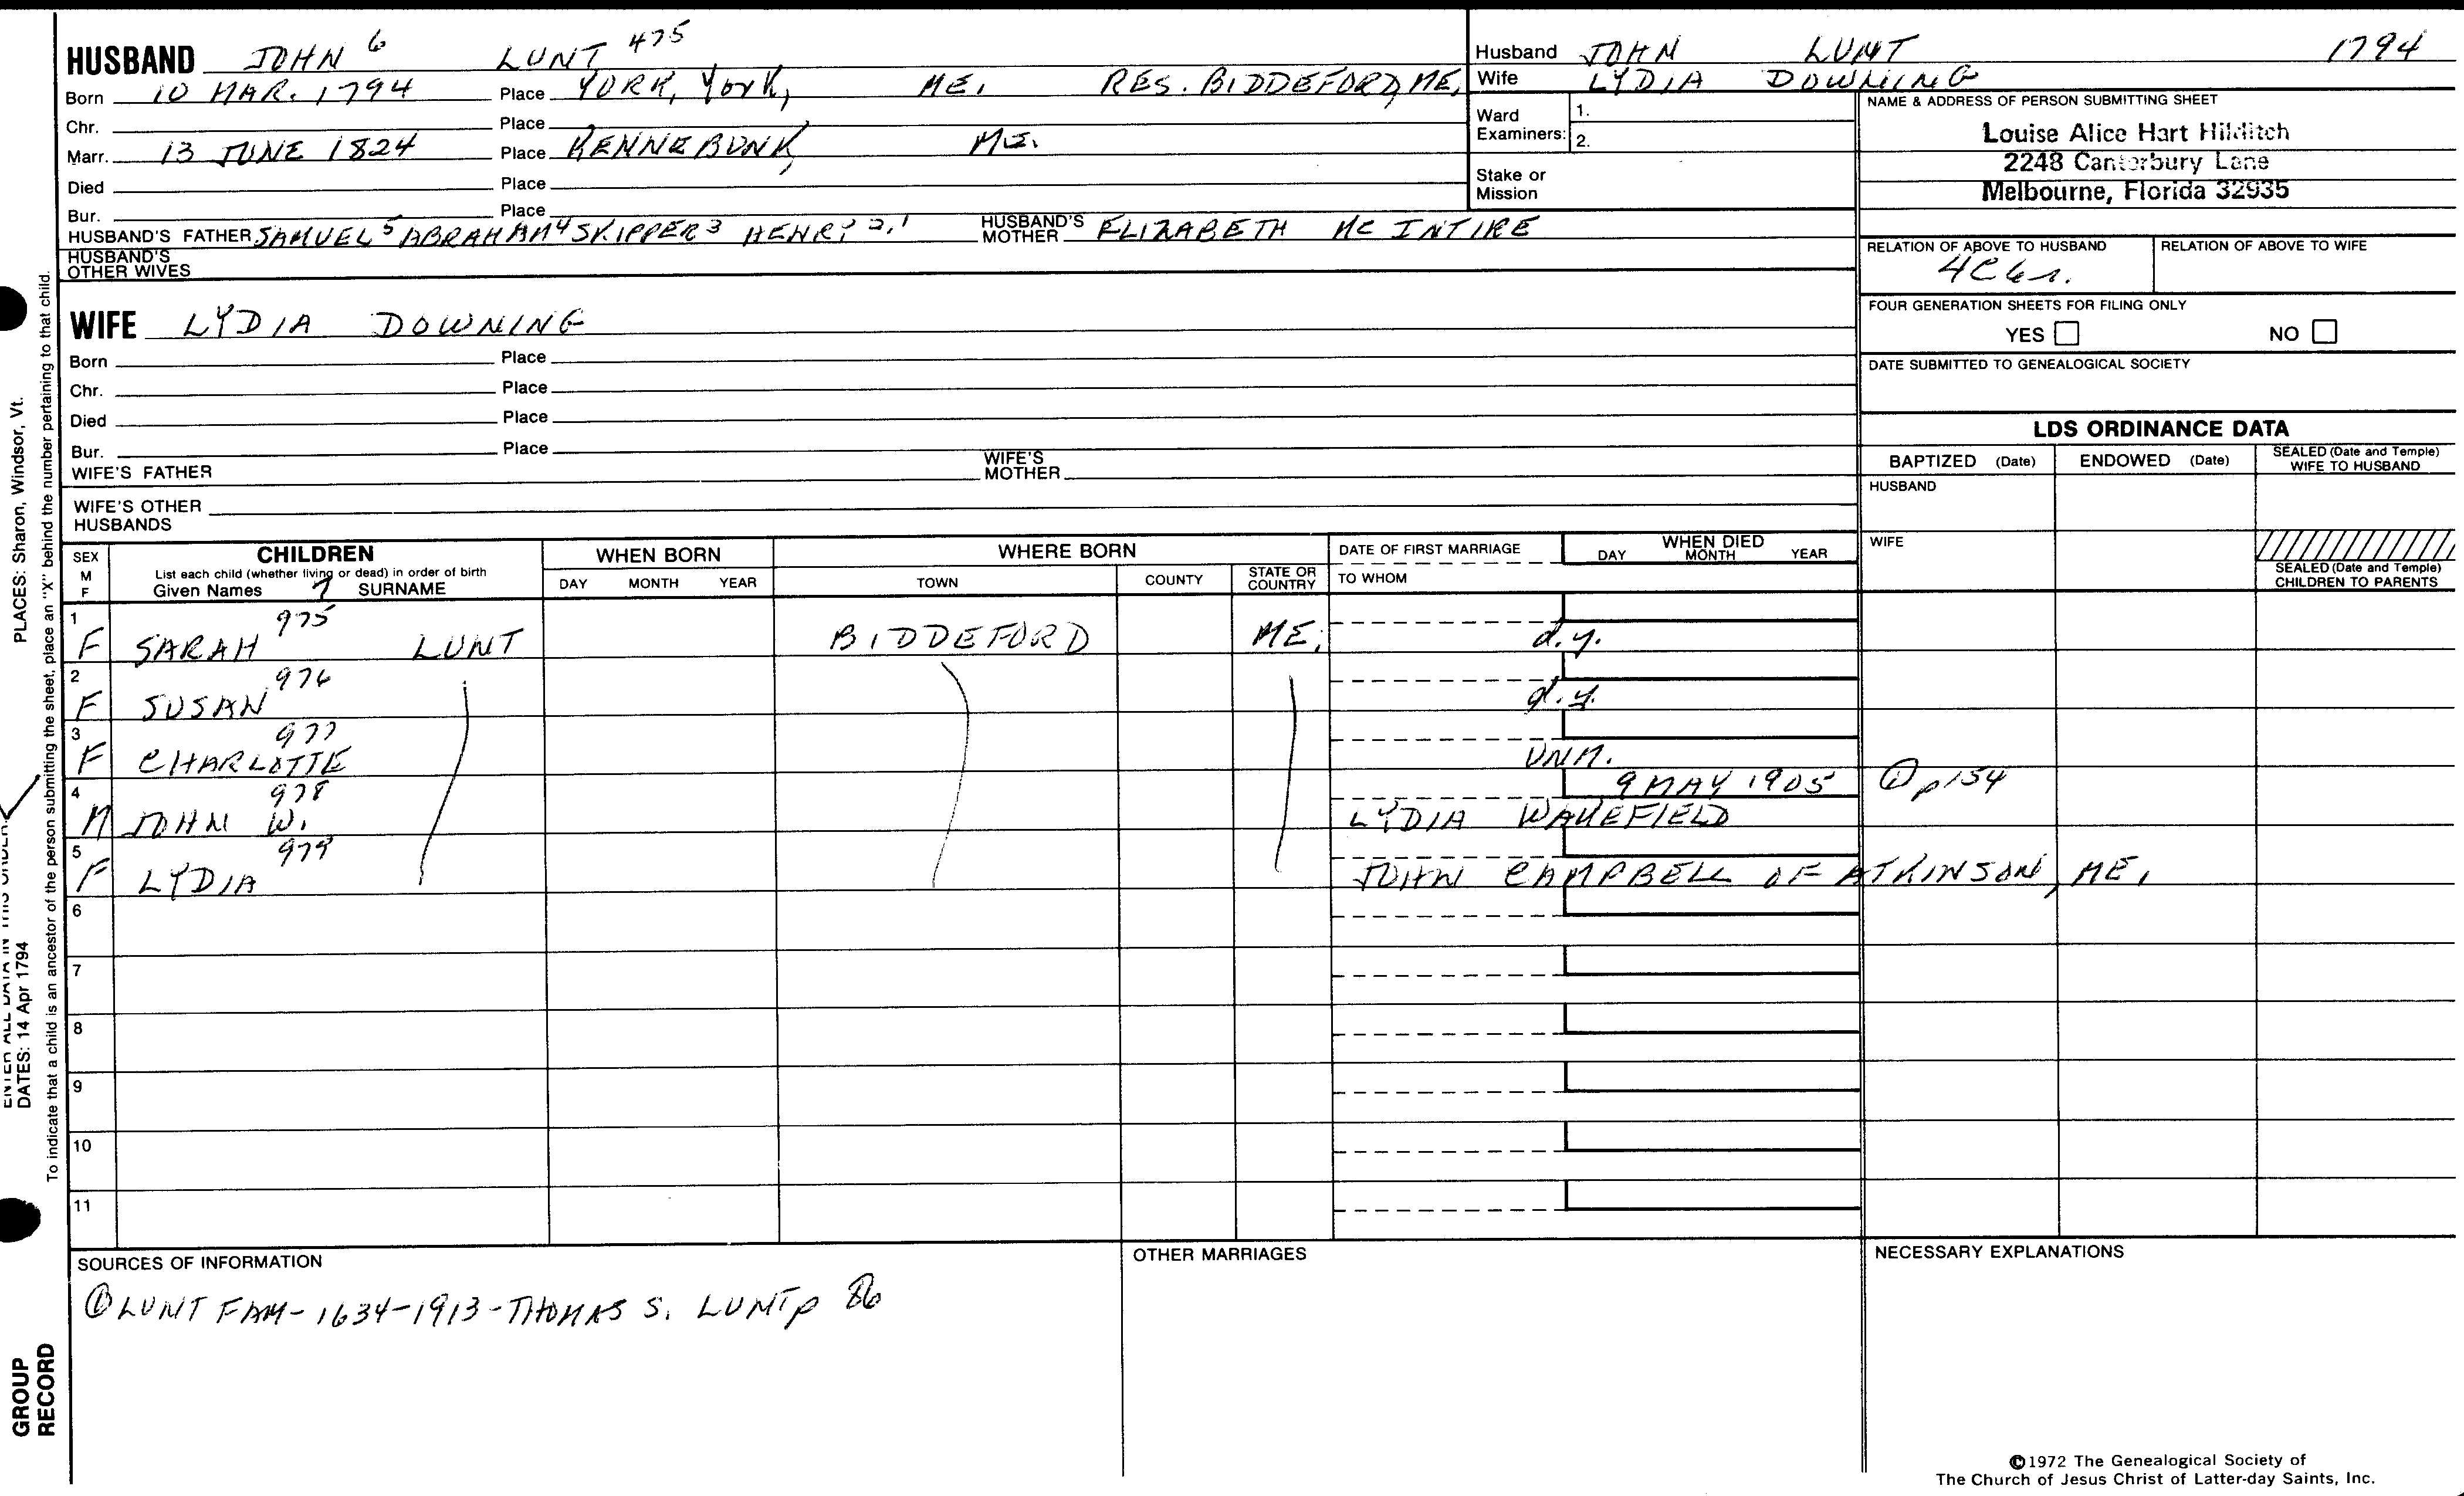 HUSBAND JOHN 6 LUNT 475
Born 10 MAR. 1794 Place YORK, York, ME. RES. BIDDEFORD, ME.
Chr. Place
Marr. 13 JUNE 1824 Place KENNEBUNK, ME.
Died Place
Bur. Place
HUSBAND'S FATHER SAMUEL 5 ABRAHAM 4 SKIPPER 3 HENRY 2,1 HUSBAND'S MOTHER ELIZABETH MC INTIRE
HUSBAND'S OTHER WIVES
Husband JOHN LUNT 1794
Wife LYDIA DOWNING
Ward Examiners: 1.
2.
Stake or Mission
NAME & ADDRESS OF PERSON SUBMITTING SHEET
Louise Alice Hart Hilditch
2248 Canterbury Lane
Melbourne, Florida 32935
RELATION OF ABOVE TO HUSBAND RELATION OF ABOVE TO WIFE
FOUR GENERATION SHEETS FOR FILING ONLY
YES NO
DATE SUBMITTED TO GENEALOGICAL SOCIETY
WIFE LYDIA DOWNING
Born Place
Chr. Place
Died Place
Bur. Place
WIFE'S FATHER WIFE'S MOTHER
WIFE'S OTHER HUSBANDS
LDS ORDINANCE DATA
BAPTIZED (Date) ENDOWED (Date) SEALED (Date and Temple) WIFE TO HUSBAND
HUSBAND
WIFE
SEALED (Date and Temple) CHILDREN TO PARENTS
SEX M F
CHILDREN
List each child (whether living or dead) in order of birth
Given Names 7 SURNAME
WHEN BORN
DAY MONTH YEAR
WHERE BORN
TOWN COUNTY STATE OR COUNTRY
DATE OF FIRST MARRIAGE
TO WHOM
WHEN DIED
DAY MONTH YEAR
1 975
F SARAH LUNT BIDDEFORD ME. d.y.
2 976
F SUSAN d.y.
3 977
F CHARLOTTE UNM.
4 978 9 MAY 1905 ① p154
M JOHN W. LYDIA WAKEFIELD
5 979
F LYDIA JOHN CAMPBELL OF ATKINSON, ME.
6
7
8
9
10
11
SOURCES OF INFORMATION
① LUNT FAM - 1634-1913 - THOMAS S. LUNT p 86
OTHER MARRIAGES
NECESSARY EXPLANATIONS
©1972 The Genealogical Society of
The Church of Jesus Christ of Latter-day Saints, Inc.
PLACES: Sharon, Windsor, Vt.
DATES: 14 Apr 1794
ENTER ALL DATA IN THIS ORDER
To indicate that a child is an ancestor of the person submitting the sheet, place an "X" behind the number pertaining to that child.
GROUP
RECORD